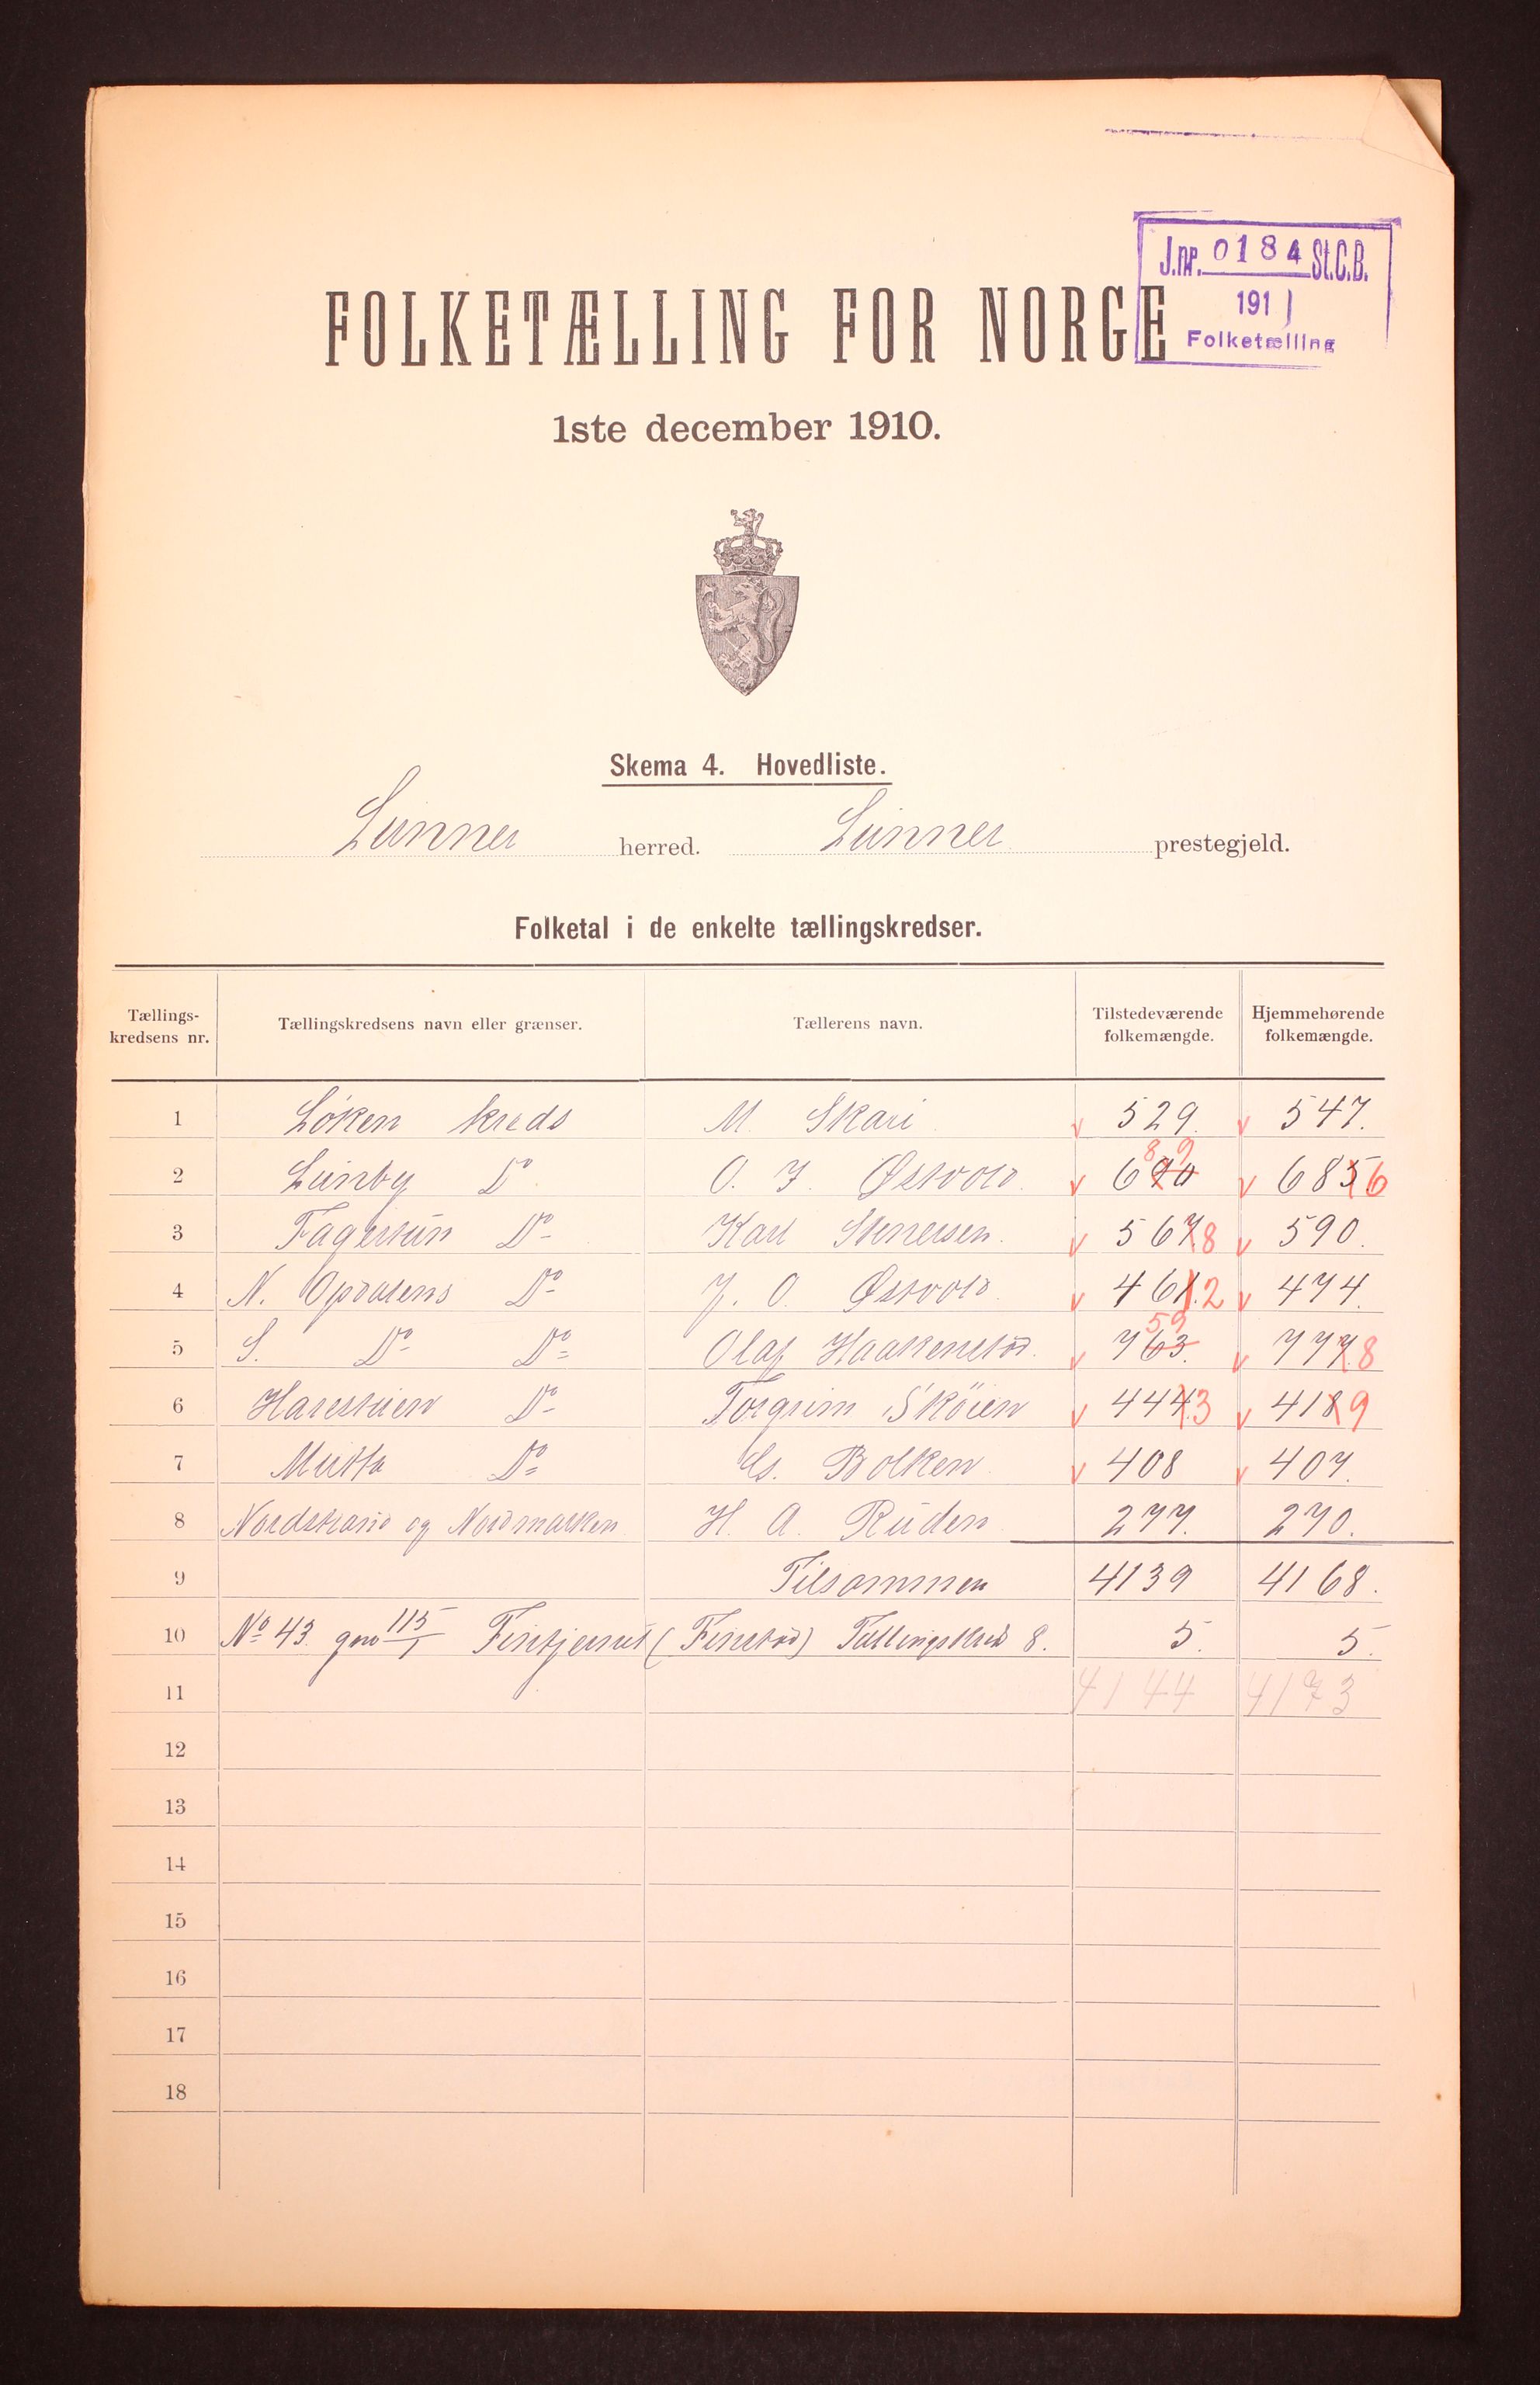 J.nr. 0184 St.C.B.
1911
Folketælling
FOLKETÆLLING FOR NORGE
1ste december 1910.
Skema 4. Hovedliste.
Lunner herred. Lunner prestegjeld.
Folketal i de enkelte tællingskredser.
Tællings-kredsens nr. Tællingskredsens navn eller grænser. Tællerens navn. Tilstedeværende folkemængde. Hjemmehørende folkemængde.
1 Løken kreds M. Skari v 529. v 547.
2 Lunby Do. O. J. Østvold. v 670 89 v 685 6
3 Fagertun Do Karl Stenersen. v 567 8 v 590.
4 N. Opdalens Do J. O. Østvold. v 461. 2 v 474.
5 S. Do Do Olaf Haakenstad. v 763. 59 v 777 8
6 Harestuen Do Torgrim Skøien v 444. 3 v 418 9
7 Mutta Do Bolken v 408 v 407.
8 Nordstrand og Nordmarken H. A. Ruden 277. 270.
9 Tilsammen 4139 4168.
10 No 43 115/1 Tællingskreds 8. 5. 5.
11 4144 4173
12
13
14
15
16
17
18